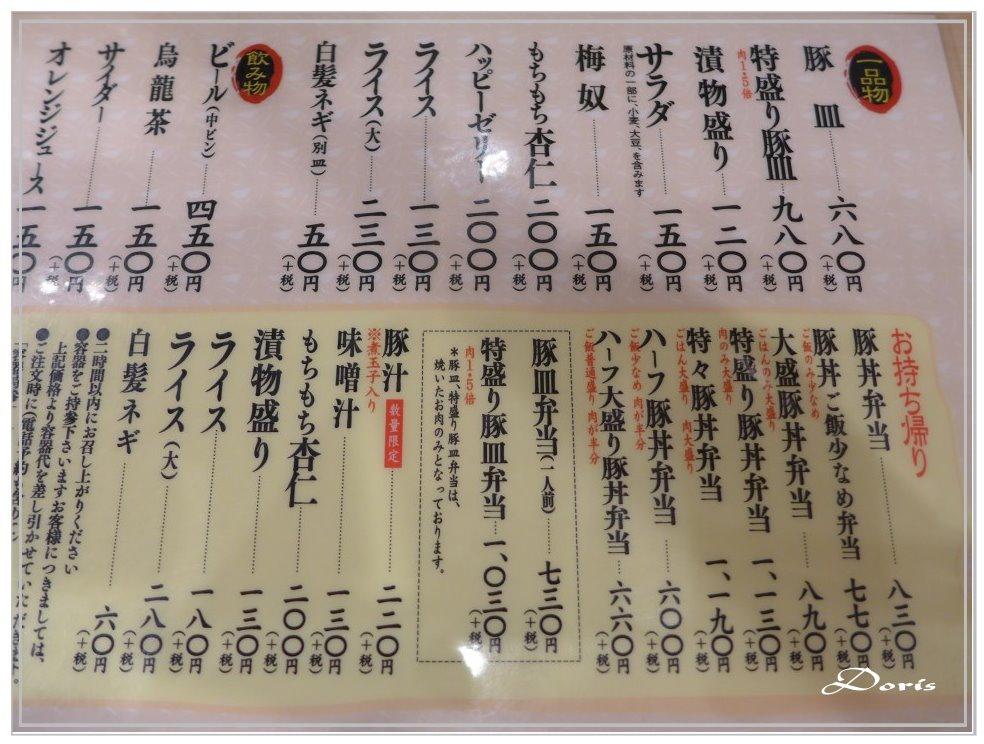 一品物
豚皿 六八〇円(+税)
特盛り豚皿 九八〇円(+税)
肉1.5倍
漬物盛り 一二〇円(+税)
サラダ 一五〇円(+税)
原材料の一部に、小麦、大豆、を含みます
梅奴 一五〇円(+税)
もちもち杏仁 二〇〇円(+税)
ハッピーゼリー 二〇〇円(+税)
ライス 一三〇円(+税)
ライス(大) 二三〇円(+税)
白髪ネギ(別皿) 五〇円(+税)
飲み物
ビール(中ビン) 四五〇円(+税)
烏龍茶 一五〇円(+税)
サイダー 一五〇円(+税)
オレンジジュース 一五〇円(+税)
お持ち帰り
豚丼弁当 八三〇円(+税)
豚丼ご飯少なめ弁当 七七〇円(+税)
ご飯のみ少なめ
大盛豚丼弁当 八九〇円(+税)
ごはんのみ大盛り
特盛り豚丼弁当 一、一三〇円(+税)
肉のみ大盛り
特々豚丼弁当 一、一九〇円(+税)
ごはん大盛り 肉大盛り
ハーフ豚丼弁当 六〇〇円(+税)
ご飯少なめ 肉が半分
ハーフ大盛り豚丼弁当 六六〇円(+税)
ご飯普通盛り 肉が半分
豚皿弁当(一人前) 七三〇円(+税)
特盛り豚皿弁当 一、〇三〇円(+税)
肉1.5倍
*豚皿、特盛り豚皿弁当は、
焼いたお肉のみとなっております。
豚汁 数量限定 二二〇円(+税)
※煮玉子入り
味噌汁 一三〇円(+税)
もちもち杏仁 二〇〇円(+税)
漬物盛り 一三〇円(+税)
ライス 一八〇円(+税)
ライス(大) 二八〇円(+税)
白髪ネギ 六〇円(+税)
●二時間以内にお召し上がりください
●容器をご持参下さいますお客様につきましては、
上記価格より容器代を差し引かせていただきます。
●ご注文時に(電話予約
Doris